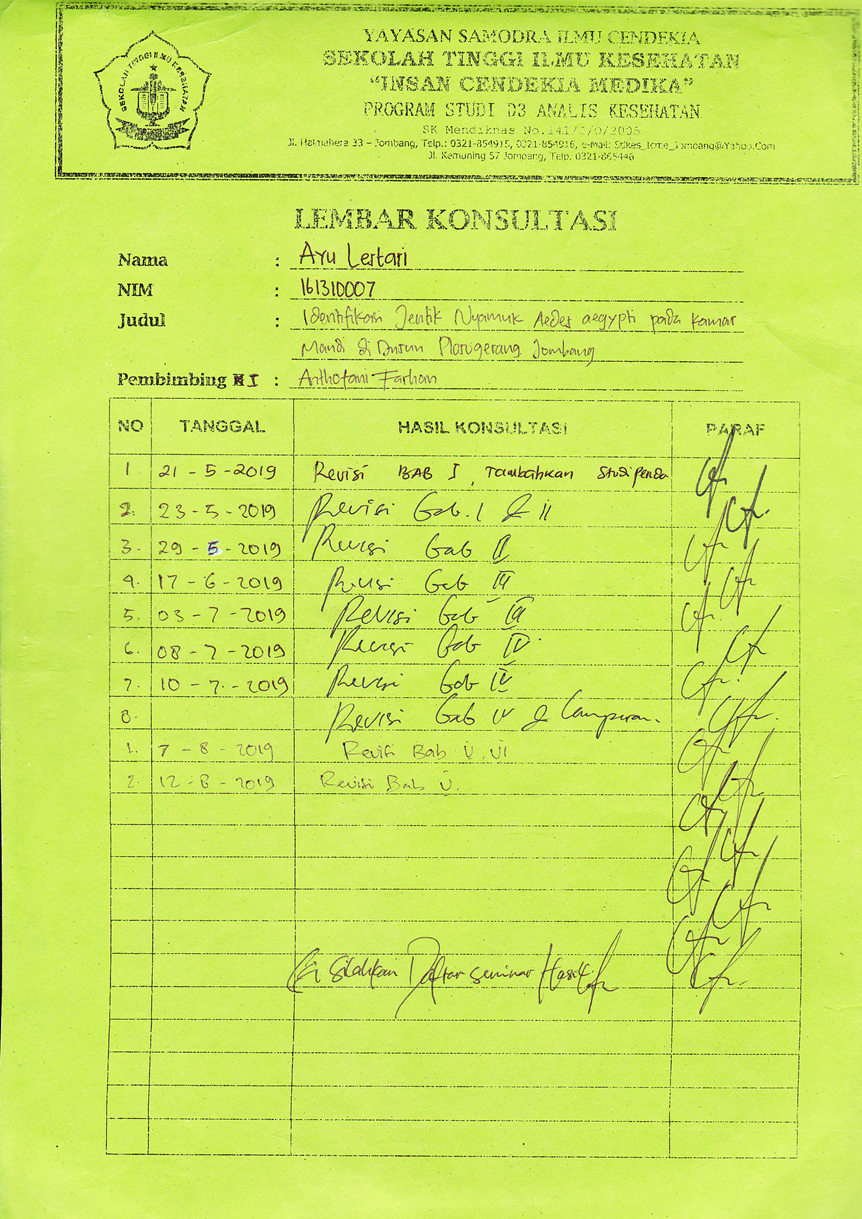 SEKOLAH TINGGI ILMU KESEHATAN
YAYASAN SAMODRA ILMU CENDEKIA
SEKOLAH TINGGI ILMU KESEHATAN
"INSAN CENDEKIA MEDIKA"
PROGRAM STUDI D3 ANALIS KESEHATAN
SK Mendiknas No.141/D/O/2005
Jl. Halmahera 33 – Jombang, Telp.: 0321-854915, 0321-854916, e-Mail: Stikes_Icme_Jombang@Yahoo.Com
Jl. Kemuning 57 Jombang, Telp. 0321-865446
LEMBAR KONSULTASI
Nama : Ayu Lestari
NIM : 161310007
Judul : Identifikasi Jentik Nyamuk Aedes aegypti pada Kamar
Mandi di Dusun Jombang
Pembimbing I : Anthofani Farhan
NO TANGGAL HASIL KONSULTASI PARAF
1 21 - 5 - 2019 Revisi BAB I, Tambahkan Studi Penda
2. 23 - 5 - 2019 Revisi Bab. I & II
3. 29 - 5 - 2019 Revisi Bab II
4. 17 - 6 - 2019 Revisi Bab III
5. 03 - 7 - 2019 Revisi Bab III
6. 08 - 7 - 2019 Revisi Bab IV.
7. 10 - 7 - 2019 Revisi Bab IV
8. Revisi Bab IV & Lampiran.
1. 7 - 8 - 2019 Revisi Bab V, VI
2. 12 - 8 - 2019 Revisi Bab V.
Silahkan Daftar Seminar Hasil